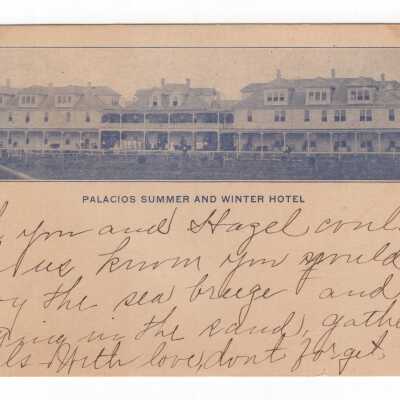 PALACIOS SUMMER AND WINTER HOTEL
you and Hazel coul
us know you would
the sea breeze and
in the sand, gathe
ls With love, dont forget